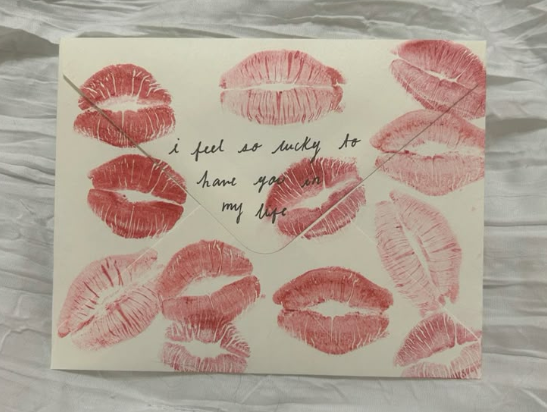 i feel so lucky to
have you in
my life